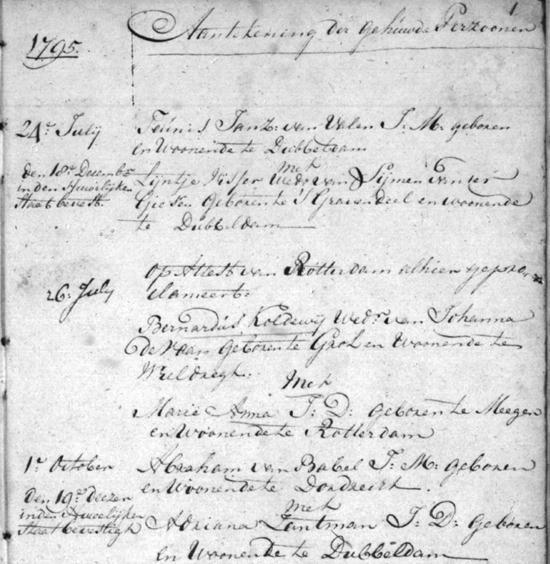 1
1795.
Aantekening der Gehuwde Perzoonen
24e July
Teunis Janz: van Valen J: M: geboren
en Woonende te Dubbeldam
Met
den 18e Decemb
in den Huwelijken
Staat bevest.
Lijntje Visser Wedr van Sijmen van der
Giesen Geboren te S Gravendeel en woonende
te Dubbeldam
26e July
Op Attest van Rotterdam alhier geproclameert:
Bernardus Koldewij Wedr van Johanna
de Haan geboren te Grol en Woonende te
Met
Maria Anna J: D: Geboren te Meegen
en Woonende te Rotterdam
1e October
Abraham van Babel J: M: geboren
en Woonende te Dordrecht.
Met
den 19e deezer
in den Huwelijken
Staat bevestigt
Adriana Zantman J: D: Geboren
en Woonende te Dubbeldam